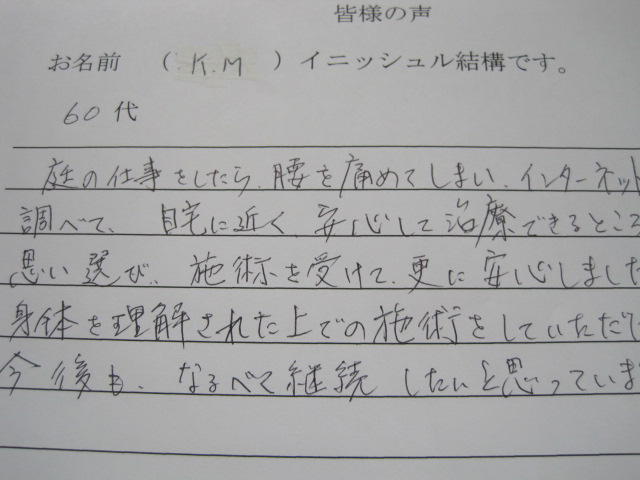 皆様の声
お名前 （ K.M ）イニッシュル結構です。
60代
庭の仕事をしたら、腰を痛めてしまい、インターネット
調べて、自宅に近く、安心して治療できるところ
思い選び、施術を受けて、更に安心しました
身体を理解された上での施術をしていただけ
今後も、なるべく継続したいと思っていま